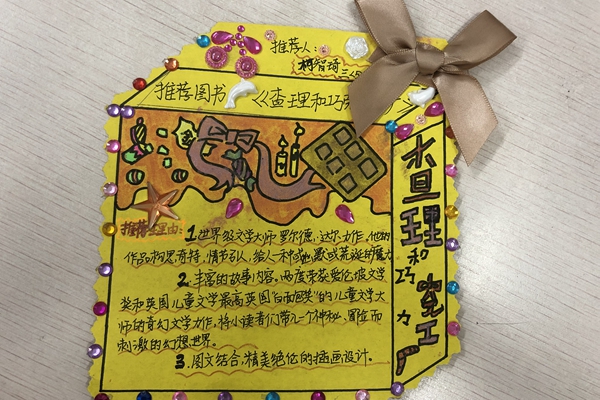 推荐人:
柯智琦 三
推荐图书 《查理和巧
推荐理由:
1.世界级文学大师罗尔德·达尔力作,他的
作品构思奇特,情节引人,给人一种或幽默或荒诞的魔力
2.丰富的故事内容。两度荣获爱伦坡文学
奖和英国儿童文学最高英国"白面包奖"的儿童文学大
师的奇幻文学力作,将小读者们带入一个神秘、冒险而
刺激的幻想世界。
3.图文结合,精美绝伦的插画设计。
查理和巧克力工厂